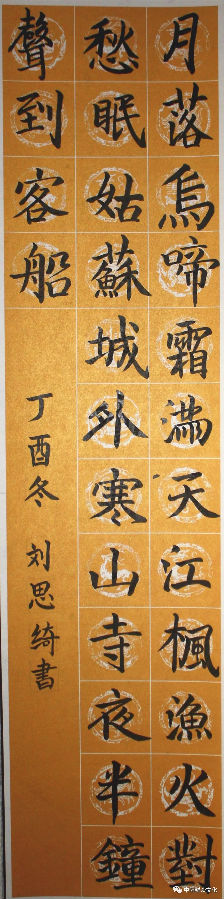 月落烏啼霜满天江楓漁火對
愁眠姑蘇城外寒山寺夜半鐘
聲到客船
丁酉冬 刘思绮書